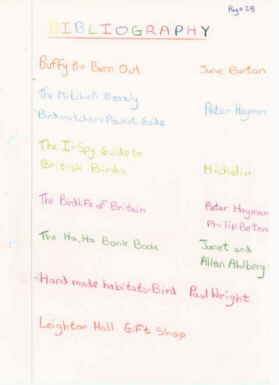 Page 28
BIBLIOGRAPHY
Buffy the Barn Owl Jane Burton
The Mitchell Beazly Birdwatchers Pocket Guide Peter Hayman
The I-Spy Guide to British Birds Michelin
The Birdlife of Britain Peter Hayman
Philip Burton
The Ha, Ha Bonk Book Janet and
Allan Ahlberg
Hand made habitats-Bird Paul Wright
Leighton Hall Gift Shop